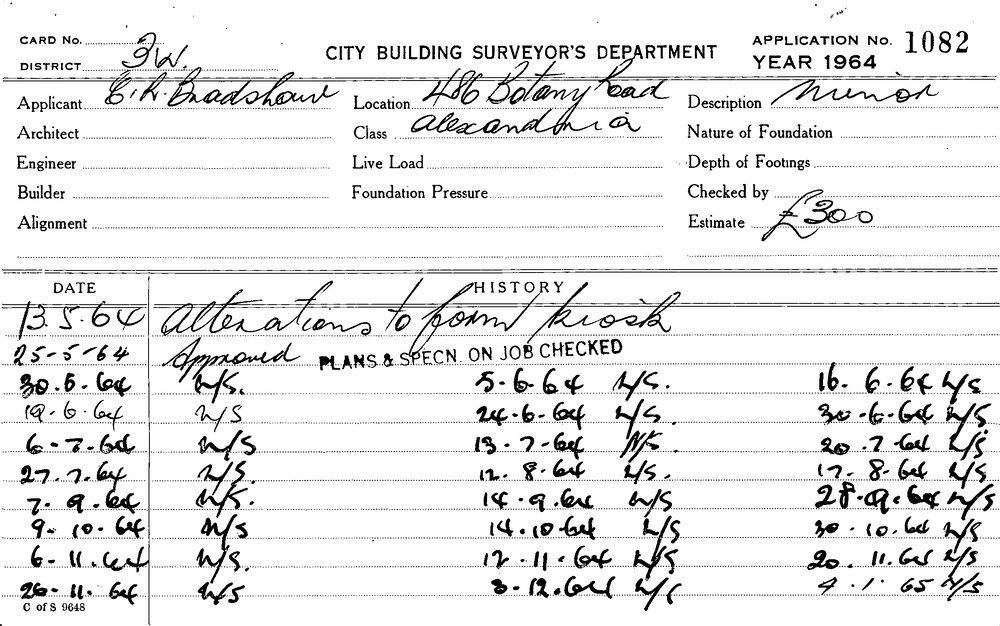 CARD No.
DISTRICT 3W.
CITY BUILDING SURVEYOR'S DEPARTMENT
APPLICATION No. 1082
YEAR 1964
Applicant E.R. Bradshaw Location 486 Botany Road Description Minor
Architect Class Alexandria Nature of Foundation
Engineer Live Load Depth of Footings
Builder Foundation Pressure Checked by
Alignment Estimate £300
DATE HISTORY
13.5.64 Alterations to form kiosk
25-5-64 Approved PLANS & SPECN. ON JOB CHECKED
30.5.64 N/S. 5-6-64 N/S. 16.6.64 N/S
19.6.64 N/S 24.6.64 N/S. 30-6-64 N/S.
6-7-64 N/S 13-7-64 N/S. 20.7-64 N/S
27.7.64 N/S. 12.8.64 N/S. 17.8.64 N/S
7.9.64 N/S. 14.9.64 N/S 28.9.64 N/S
9-10-64 N/S 14.10.64 N/S 30.10.64 N/S
6-11.64 N/S. 12-11-64 N/S 20.11.64 N/S
26-11.64 N/S 3-12.64 N/S 4.1.65 N/S
C of S 9648